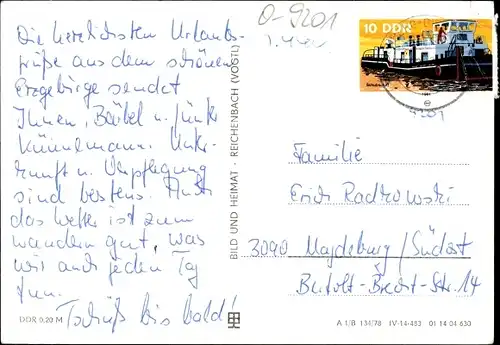 Die herzlichsten Urlaubs-
grüße aus dem schönen
Erzgebirge sendet
Ihnen, Bärbel u. Günter
Künnelmann. Unter-
kunft u. Verpflegung
sind bestens. Auch
das Wetter ist zum
wandern gut, was
wir auch jeden Tag
tun.
Tschüß bis bald!
DDR 0,20 M
BILD UND HEIMAT · REICHENBACH (VOGTL)
0-9201
10 DDR
9201
Familie
Erich Radkowski
3090 Magdeburg/Südost
Bertolt-Brecht-Str. 14
A 1/B 134/78 IV-14-483 01 14 04 630